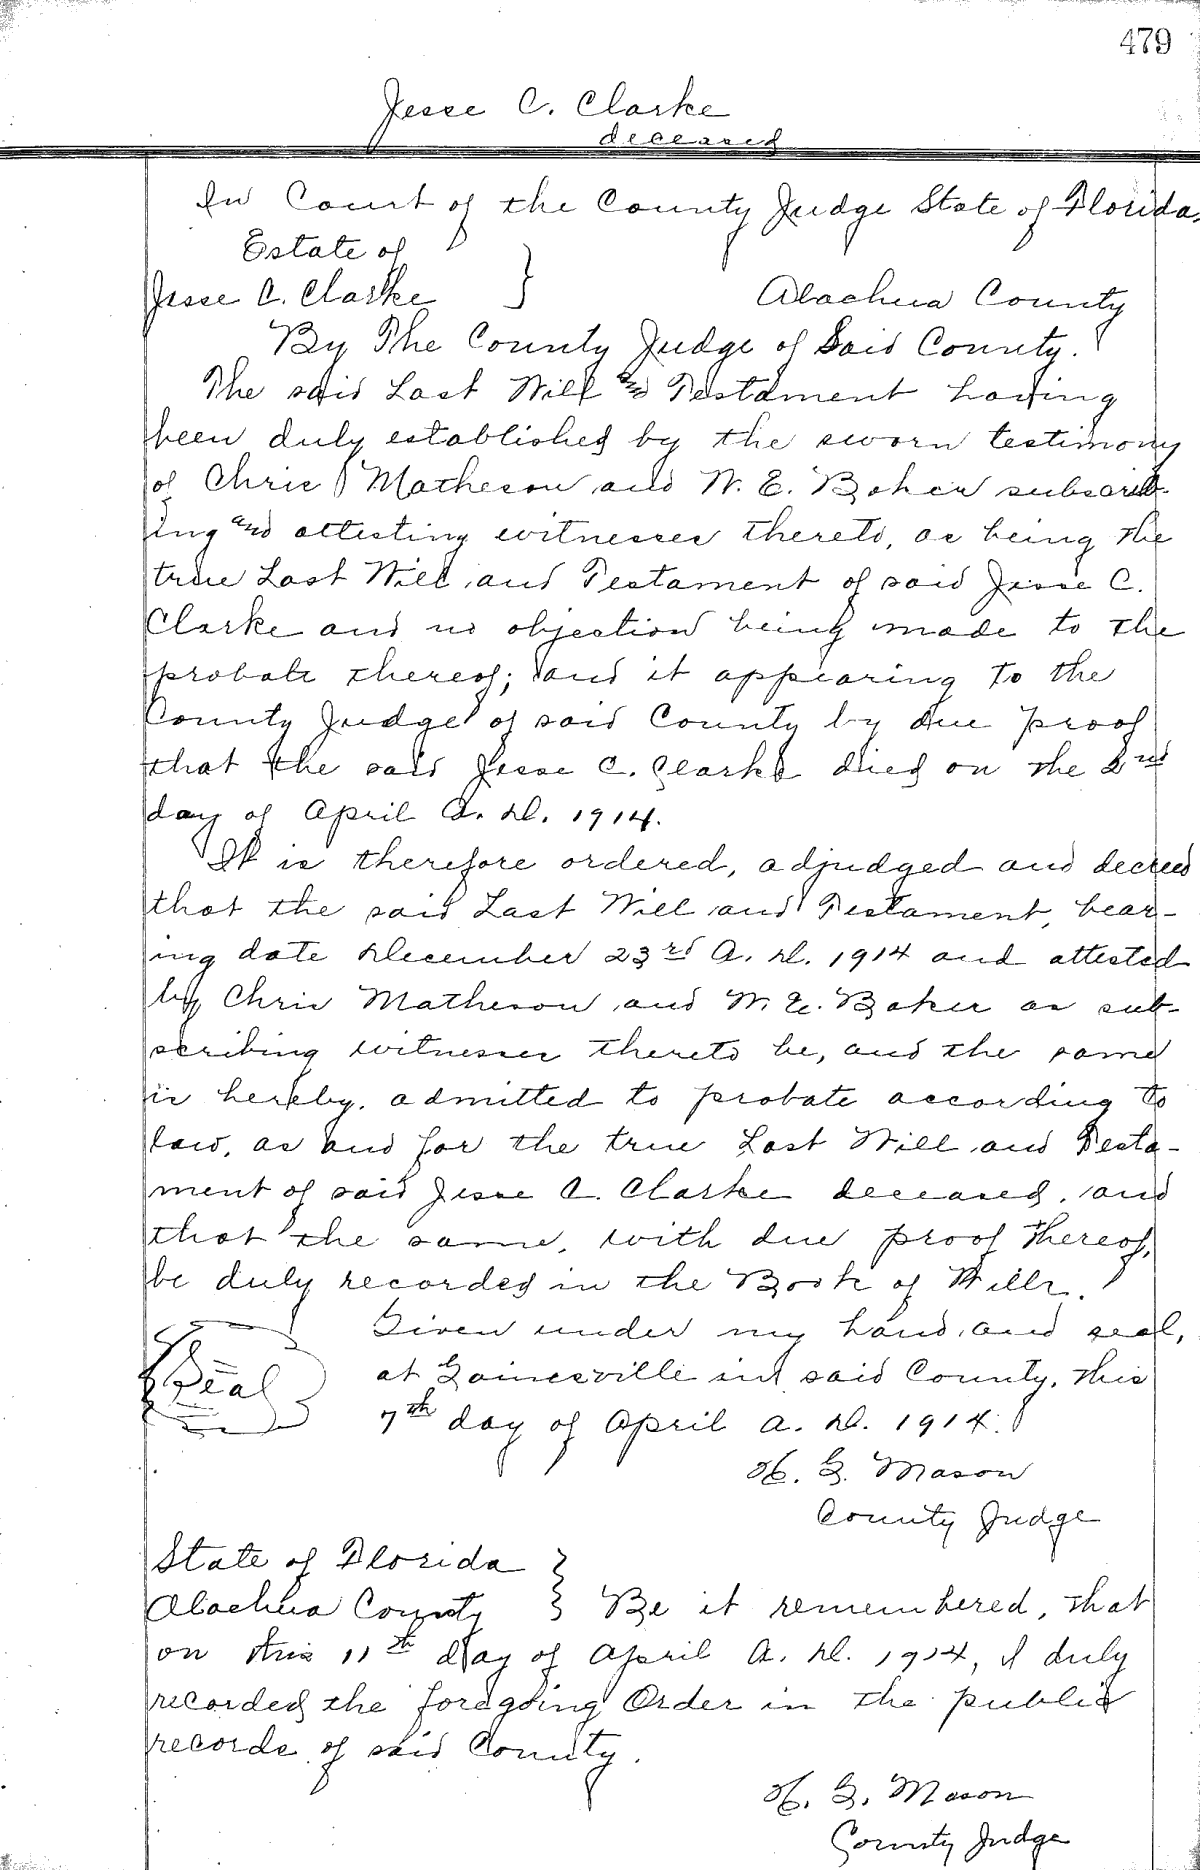 479
Jesse C. Clarke
deceased
In Court of the County Judge State of Florida.
Estate of
Jesse C. Clarke } Alachua County
By The County Judge of Said County.
The said Last Will and Testament having
been duly established by the sworn testimony
of Chris Matheson and W. E. Baker subscrib-
ing and attesting witnesses thereto, as being the
true Last Will and Testament of said Jesse C.
Clarke and no objection being made to the
probate thereof; and it appearing to the
County Judge of said County by due proof
that the said Jesse C. Clarke died on the 2nd
day of April A. D. 1914.
It is therefore ordered, adjudged and decreed
that the said Last Will and Testament, bear-
ing date December 23rd A. D. 1914 and attested
by Chris Matheson and W. E. Baker as sub-
scribing witnesses thereto be, and the same
is hereby, admitted to probate according to
law, as and for the true Last Will and Testa-
ment of said Jesse C. Clarke deceased, and
that the same, with due proof thereof,
be duly recorded in the Book of Wills.
Given under my hand and seal,
Seal at Gainesville in said County, this
7th day of April A. D. 1914.
H. G. Mason
County Judge
State of Florida
Alachua County } Be it remembered, that
on this 11th day of April A. D. 1914, I duly
recorded the foregoing Order in the public
records of said County.
H. G. Mason
County Judge